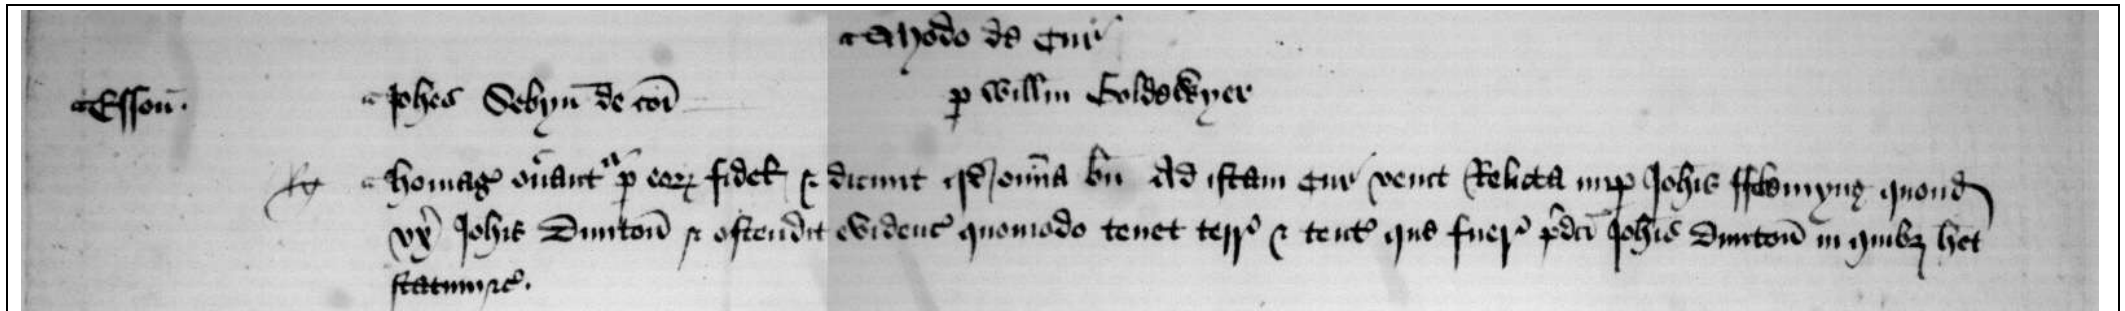 Adhuc de Cur
Esson. Johes Sebyn de coi p Willm Goldsmyer
homag onant p eor fidel & dicunt qd omia bn Ad istam Cur venit Relicta nup Johis fflemyng quond
ux Johis Dunton & ostendit evidenc quomodo tenet terr & tent que fuer pdci Johis Dunton in quibz het
statum &c.